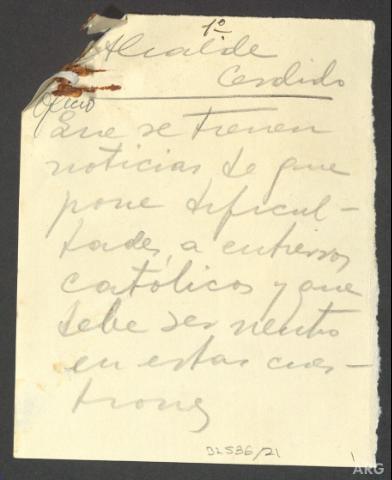 1º
Alcalde
Cerdido
que se tienen
noticias de que
pone dificul-
tades, a entierros
católicos y que
debe ser neutro
en estas cues-
tiones
32536/21
ARG